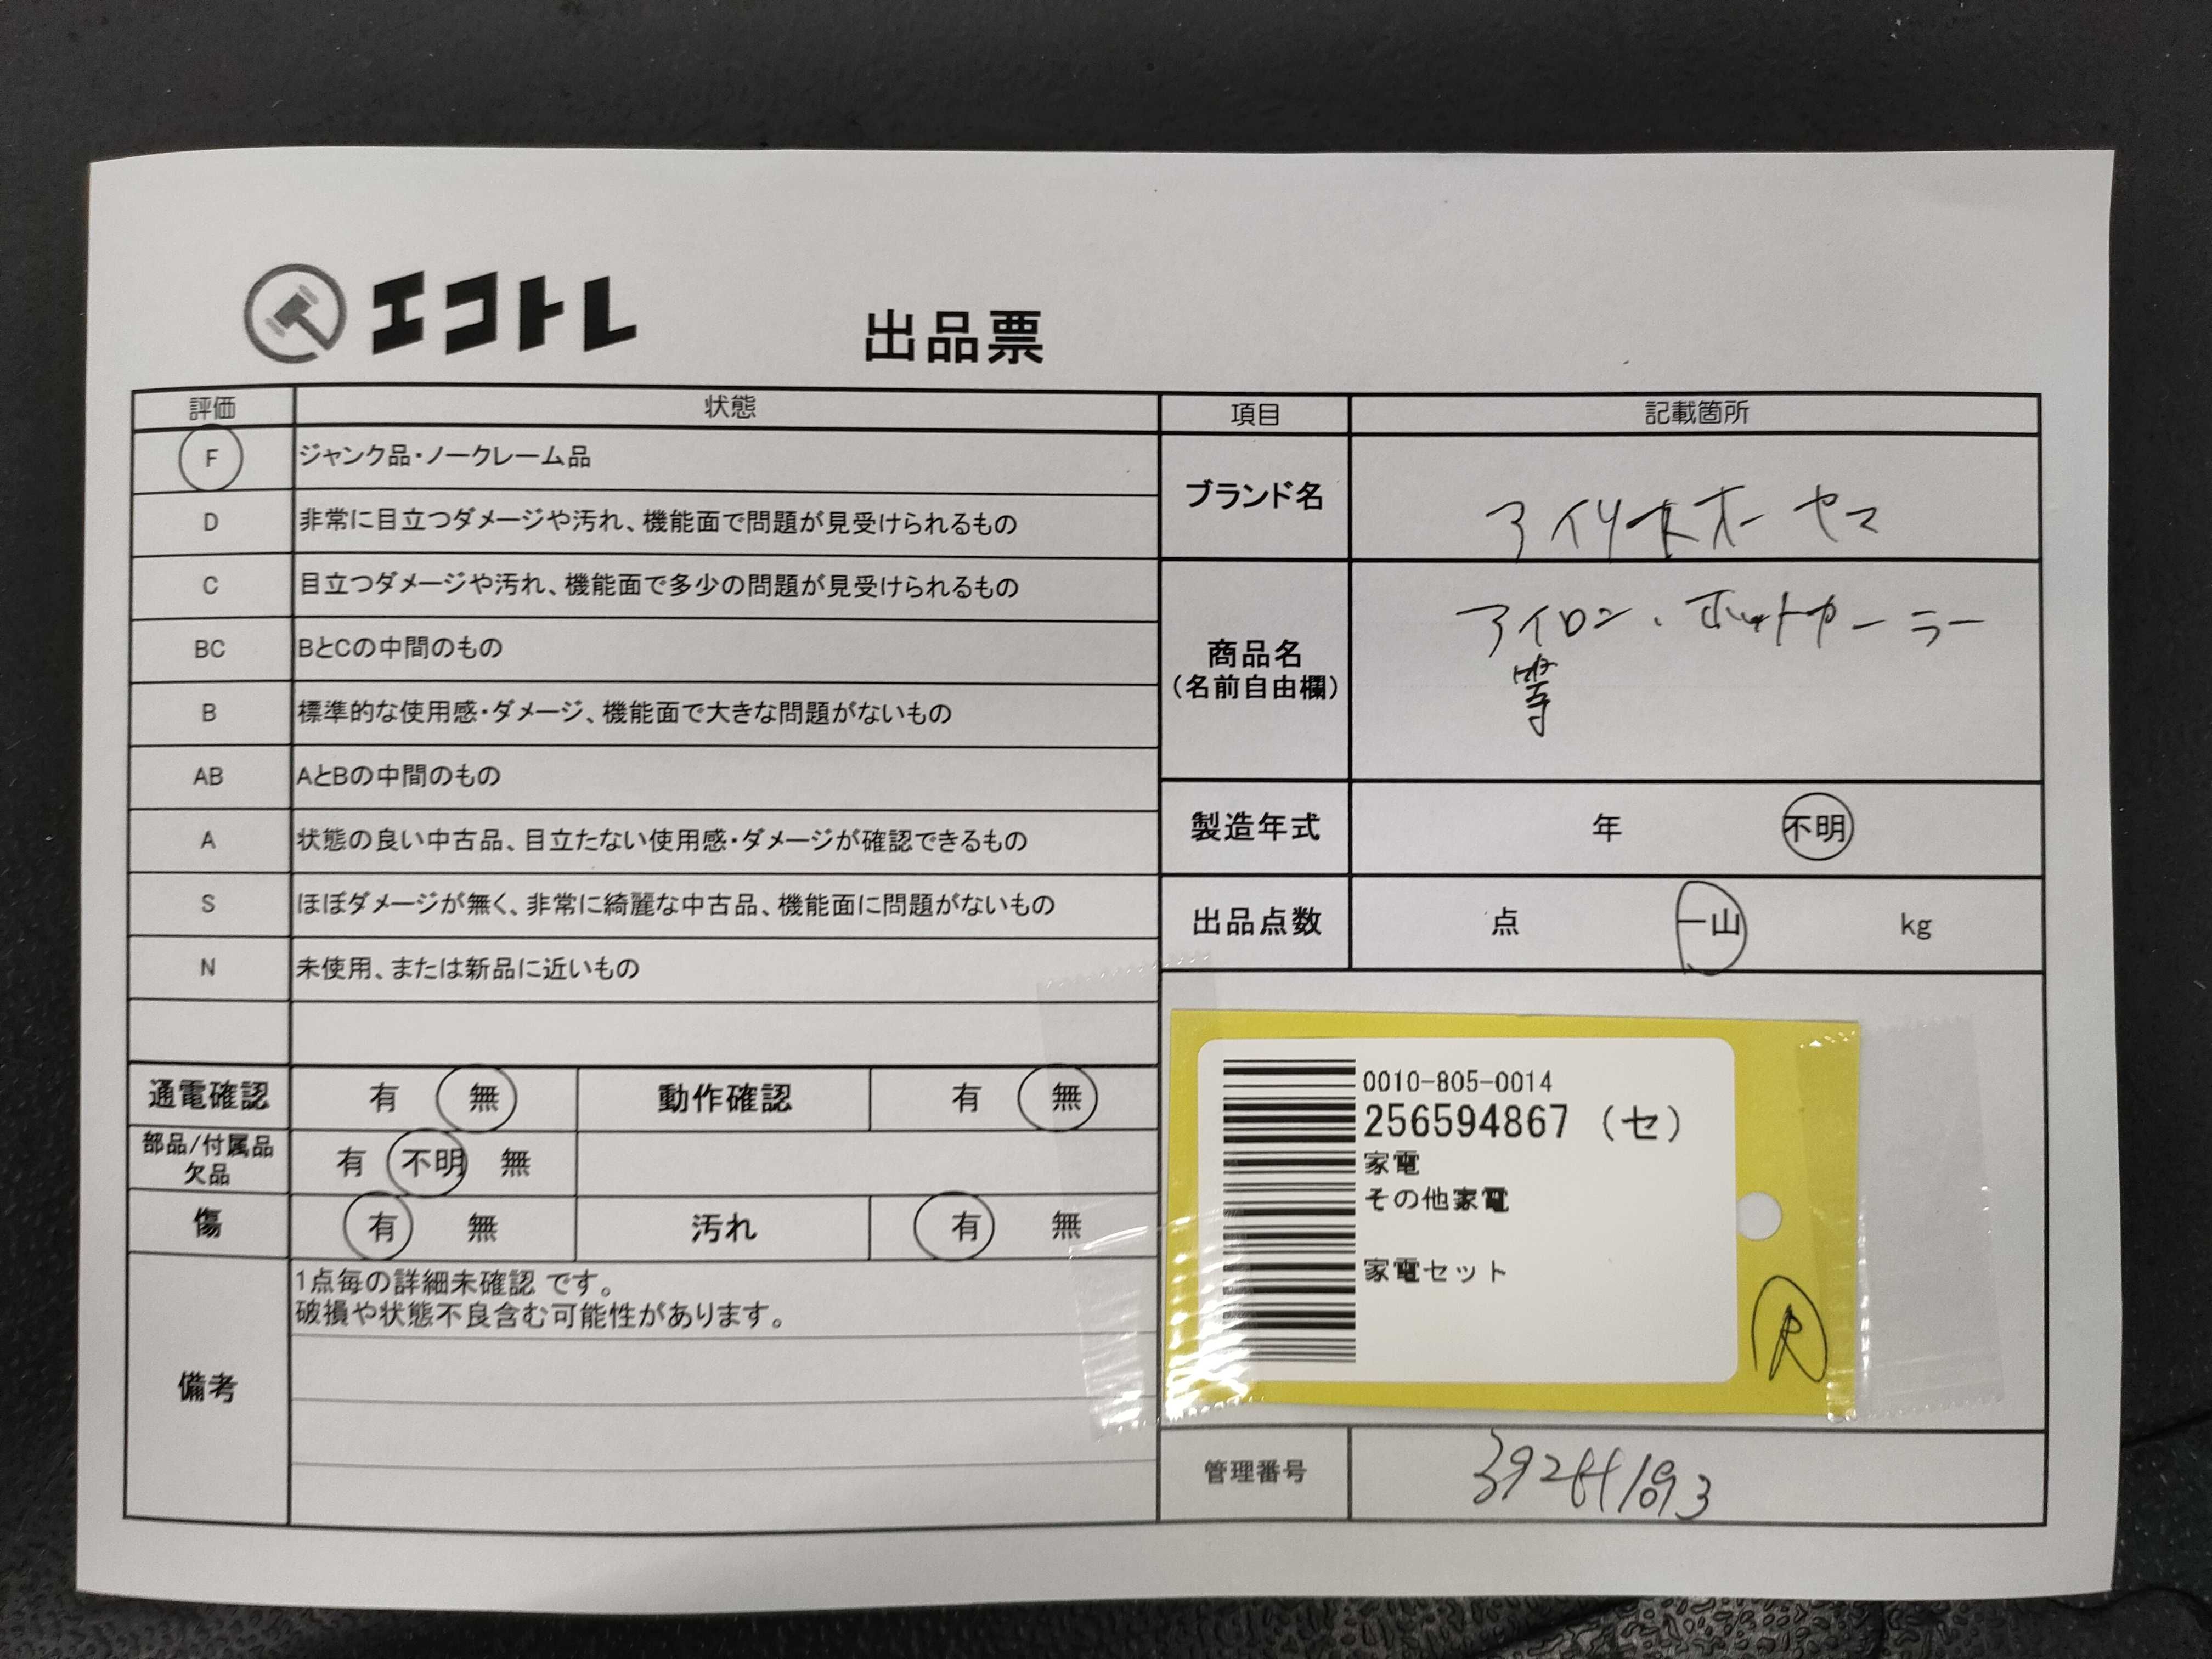 エコトレ
出品票
評価 状態
F ジャンク品・ノークレーム品
D 非常に目立つダメージや汚れ、機能面で問題が見受けられるもの
C 目立つダメージや汚れ、機能面で多少の問題が見受けられるもの
BC BとCの中間のもの
B 標準的な使用感・ダメージ、機能面で大きな問題がないもの
AB AとBの中間のもの
A 状態の良い中古品、目立たない使用感・ダメージが確認できるもの
S ほぼダメージが無く、非常に綺麗な中古品、機能面に問題がないもの
N 未使用、または新品に近いもの
通電確認 有 無 動作確認 有 無
部品/付属品
欠品 有 不明 無
傷 有 無 汚れ 有 無
備考
1点毎の詳細未確認 です。
破損や状態不良含む可能性があります。
項目 記載箇所
ブランド名 アイリスオーヤマ
商品名
(名前自由欄)
アイロン、ホットカーラー
等
製造年式 年 不明
出品点数 点 一山 kg
0010-805-0014
256594867 (セ)
家電
その他家電
家電セット
R
管理番号